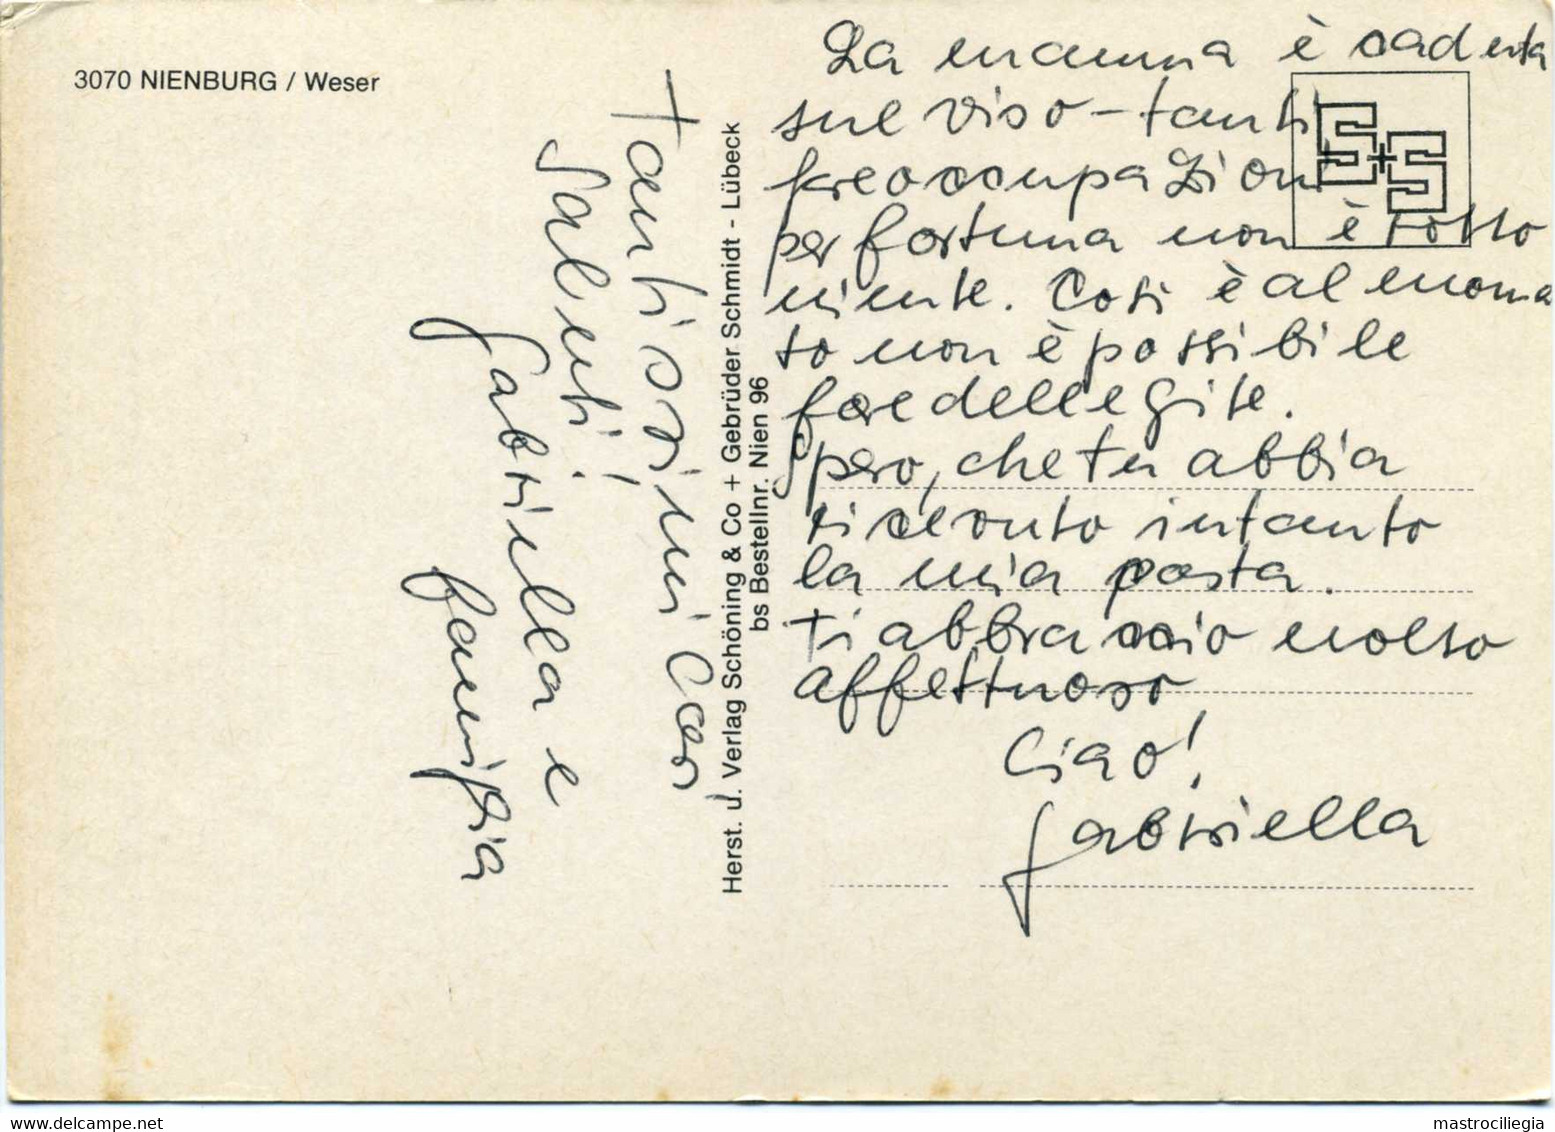 3070 NIENBURG / Weser
Tantissimi cari
saluti!
Gabriella e
famiglia
Herst. u. Verlag Schöning & Co + Gebrüder Schmidt - Lübeck
bs Bestellnr. Nien 96
S+S
La mamma è caduta
sul viso - tanti
preoccupazioni
per fortuna non è rotto
niente. Così è al momen
to non è possibile
fare delle gite.
Spero, che tu abbia
ricevuto intanto
la mia posta.
Ti abbraccio molto
affettuoso
Ciao!
Gabriella
© delcampe.net
mastrociliegia